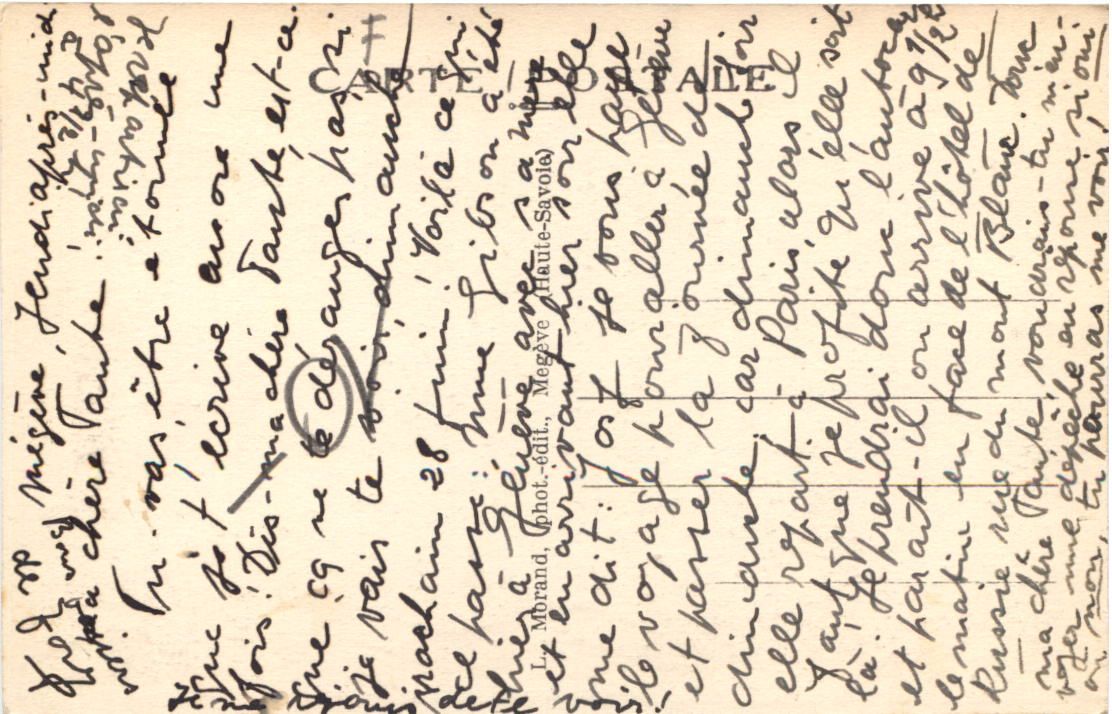 Megève, Jeudi après-midi
Ma chère Tante
Tu vas être étonnée
que je t'écrive encore une
fois! Dis-ma chère Tante est-ce
que ça ne te dé ranges pas si
je vais te voir dimanche
prochain 28 Juin! Voilà ce qui
se passe: Mme Gibson a été
hier à Genève avec sa mère
et en arrivant hier soir elle
me dit: Josf je vous paye
le voyage pour aller à Genève
et passer la journée de
dimanche, car dimanche soir
elle repart à Paris alors il
faut que je profite qu'elle soit
là! Je prendrai donc l'autocar
et paraît-il on arrive à 9 1/2 h
le matin en face de l'hôtel de
Russie rue du mont Blanc. Donc
ma chère Tante, voudrais-tu m'en-
voyer une dépêche en réponse si oui
ou non, tu pourras me voir!
Je me réjouis de te voir!
CARTE POSTALE
L. Morand, phot.-édit., Megève (Haute-Savoie)